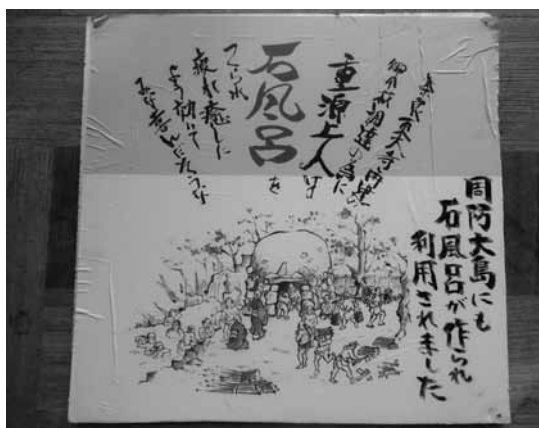 奈良東大寺再建の
御用材調達の為に
重源上人は
石風呂を
つくられ
疲れ癒した
よう効いて
みな喜んだそうな
周防大島にも
石風呂が作られ
利用されました